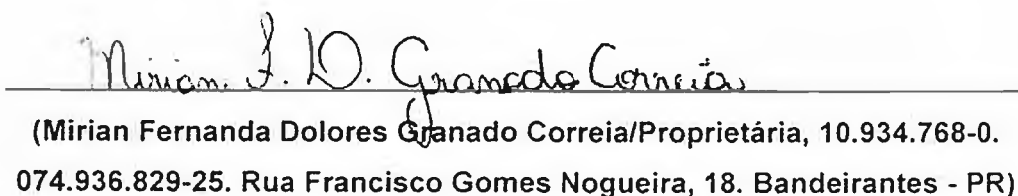 Mirian F. D. Granado Correia
(Mirian Fernanda Dolores Granado Correia/Proprietária, 10.934.768-0.
074.936.829-25. Rua Francisco Gomes Nogueira, 18. Bandeirantes - PR)